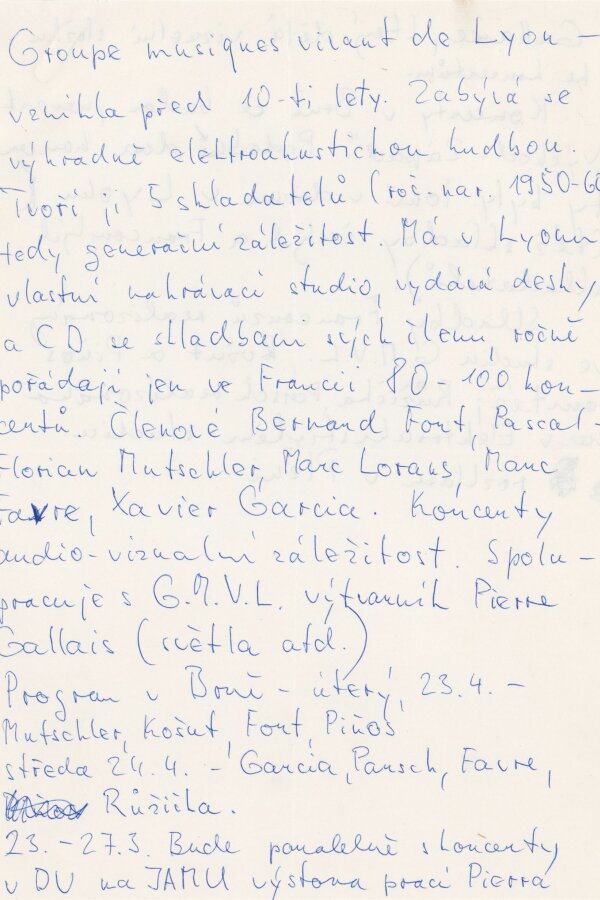 Groupe musiques vivant de Lyon –
vznikla před 10-ti lety. Zabývá se
výhradně elektroakustickou hudbou.
Tvoří ji 5 skladatelů (roč. nar. 1950-60
tedy generační záležitost. Má v Lyonu
vlastní nahrávací studio, vydává desky
a CD se skladbami svých členů, ročně
pořádají jen ve Francii 80-100 kon-
certů. Členové Bernard Font, Pascal-
Florian Mutschler, Marc Loraus, Marc
Favre, Xavier Garcia. Koncerty
audio-vizualní záležitost. Spolu-
pracuje s G.M.V.L. výtvarník Pierre
Gallais (světla atd.)
Program v Brně - úterý, 23.4. –
Mutschler, Košut, Font, Piňos
středa 24.4. - Garcia, Parsch, Favre,
Růžička.
23.-27.3. Bude paralelně s koncerty
v DU na JAMU výstava prací Pierra